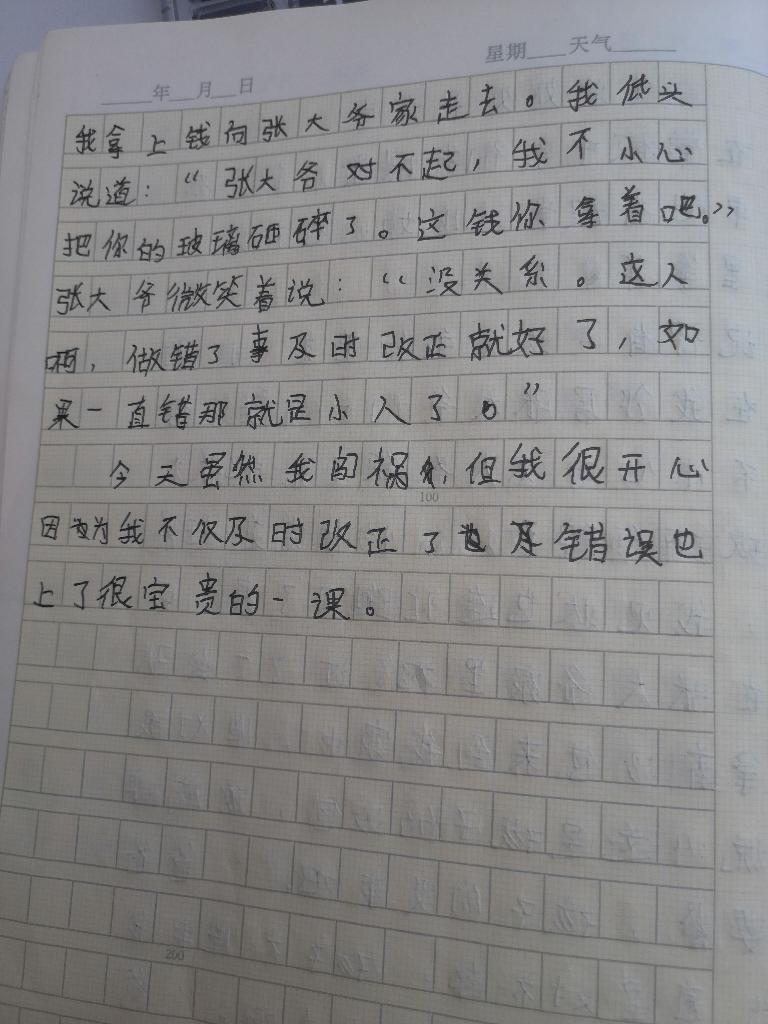 星期____天气____
____年__月__日
我拿上钱向张大爷家走去。我低头
说道：“张大爷对不起，我不小心
把你的玻璃砸碎了。这钱你拿着吧。”
张大爷微笑着说：“没关系。这人
啊，做错了事及时改正就好了，如
果一直错那就是小人了。”
今天虽然我闯祸，但我很开心
因为我不仅及时改正了错误也
上了很宝贵的一课。
100
200